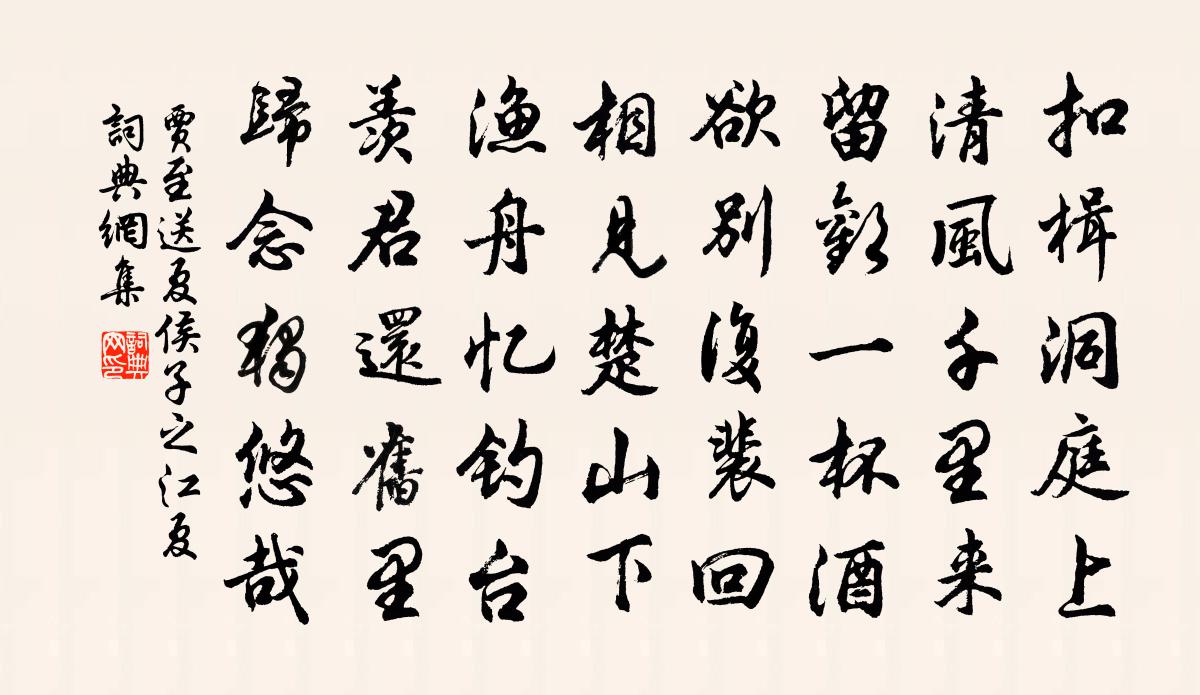 扣楫洞庭上
清風千里来
留歡一杯酒
欲别復裴回
相見楚山下
渔舟忆钓台
羨君還舊里
歸念獨悠哉
賈至送夏侯子之江夏
詞典網集
詞典
网印